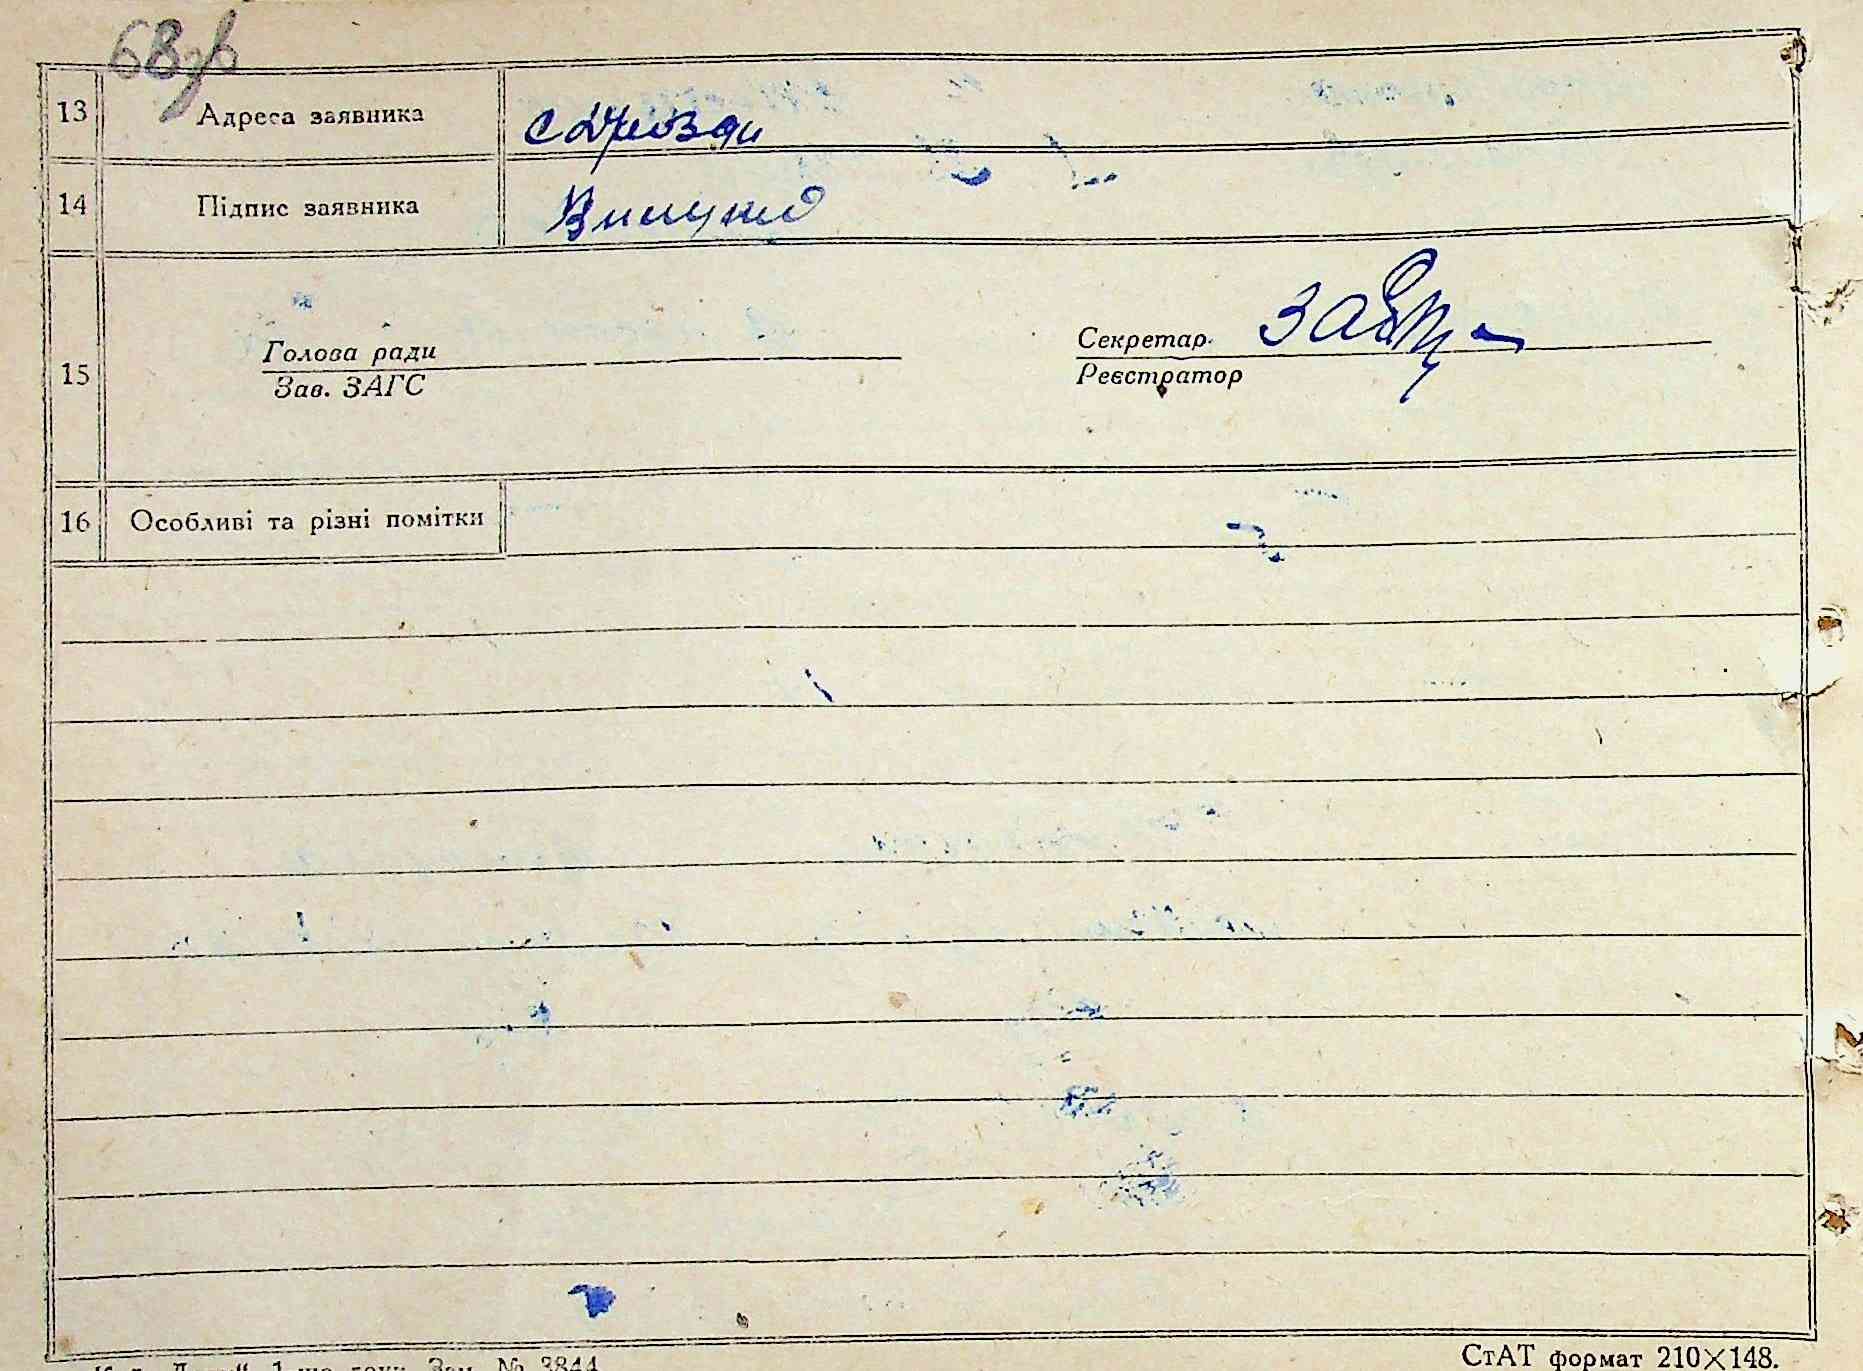 68зв
13 Адреса заявника с Дрозди
14 Підпис заявника
15 Голова ради Секретар
Зав. ЗАГС Реєстратор
16 Особливі та різні помітки
Зам. № 3844
СтАТ формат 210×148.